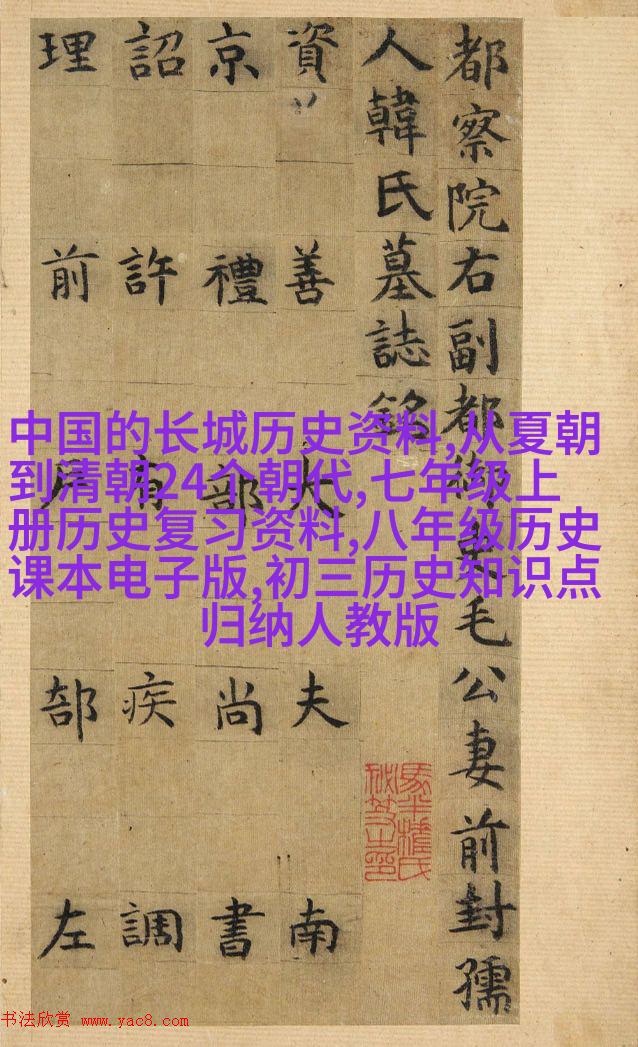 都察院右副都御史毛公妻前封孺
人韓氏墓誌銘
資善大夫南
京禮部尚書
詔許疾調
理前部左
中国的长城历史资料,从夏朝
到清朝24个朝代,七年级上
册历史复习资料,八年级历史
课本电子版,初三历史知识点
归纳人教版
书法欣赏 www.yac8.com